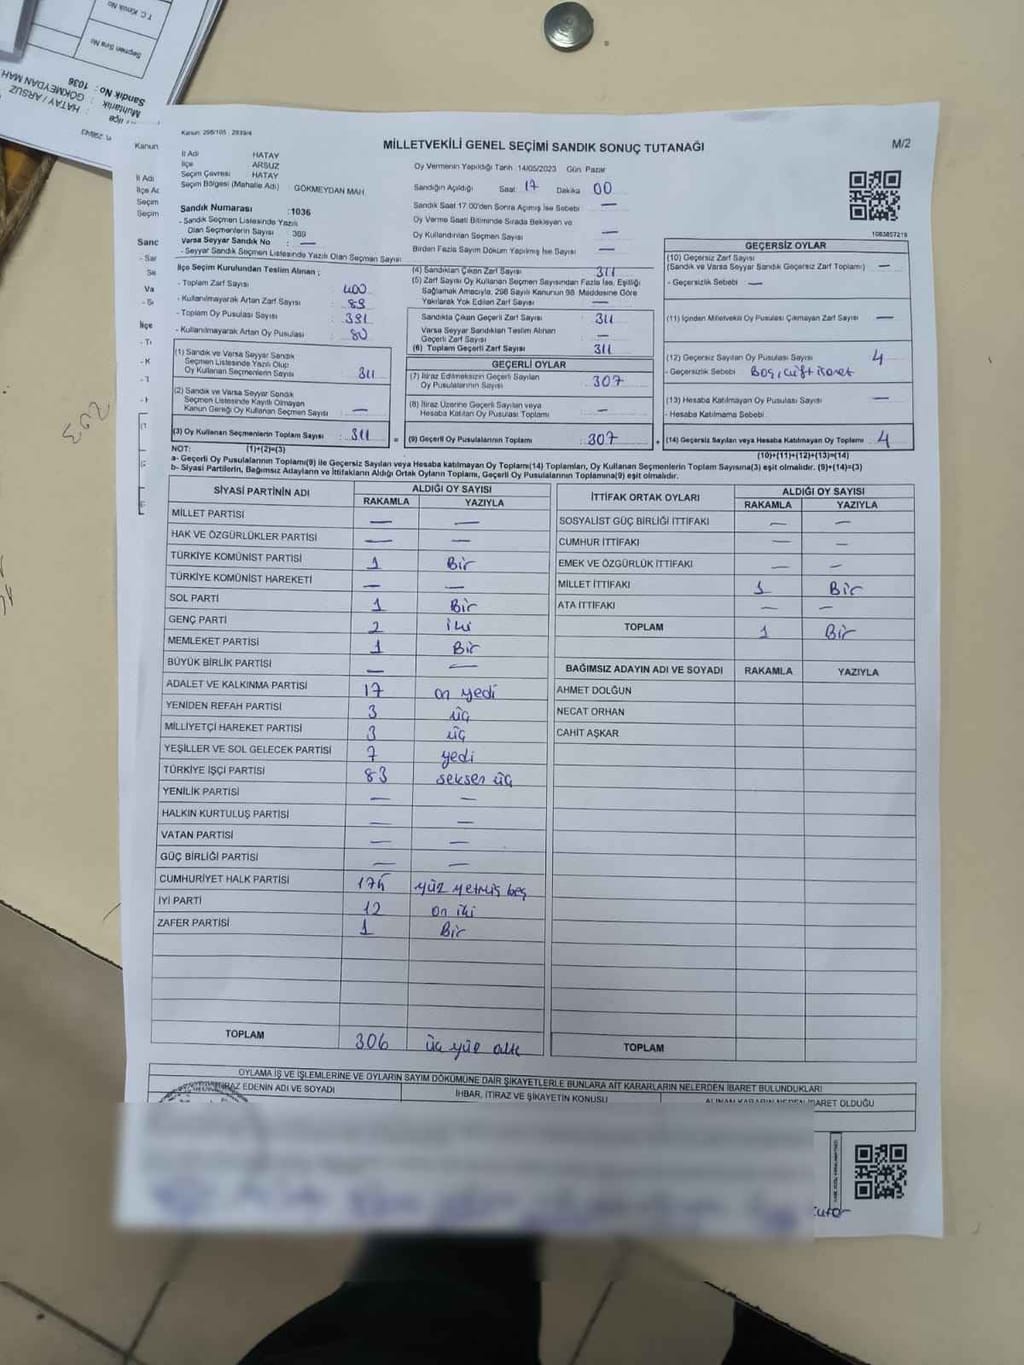 T.C. Kimlik No
Seçmen Sıra No
HATAY / ARSUZ
Muhtarlık : GÖKMEYDAN MAH
Sandık No : 1036
Kanun
İl Adı
Kanun: 298/105 - 2839/4
MİLLETVEKİLİ GENEL SEÇİMİ SANDIK SONUÇ TUTANAĞI
M/2
İl Adı : HATAY
İlçe : ARSUZ
Seçim Çevresi : HATAY
Seçim Bölgesi (Mahalle Adı) : GÖKMEYDAN MAH.
Sandık Numarası :1036
- Sandık Seçmen Listesinde Yazılı
Olan Seçmenlerin Sayısı : 389
Varsa Seyyar Sandık No : —
- Seyyar Sandık Seçmen Listesinde Yazılı Olan Seçmen Sayısı
Oy Vermenin Yapıldığı Tarih 14/05/2023 Gün Pazar
Sandığın Açıldığı Saat 17 Dakika 00
Sandık Saat 17.00'den Sonra Açılmış İse Sebebi —
Oy Verme Saati Bitiminde Sırada Bekleyen ve
Oy Kullandırılan Seçmen Sayısı —
Birden Fazla Sayım Döküm Yapılmış İse Sayısı —
1083857219
İlçe Seçim Kurulundan Teslim Alınan ;
- Toplam Zarf Sayısı : 400
- Kullanılmayarak Artan Zarf Sayısı : 89
- Toplam Oy Pusulası Sayısı : 391
- Kullanılmayarak Artan Oy Pusulası : 80
(1) Sandık ve Varsa Seyyar Sandık
Seçmen Listesinde Yazılı Olup
Oy Kullanan Seçmenlerin Sayısı : 311
(2) Sandık ve Varsa Seyyar Sandık
Seçmen Listesinde Kayıtlı Olmayan
Kanun Gereği Oy Kullanan Seçmen Sayısı : —
(3) Oy Kullanan Seçmenlerin Toplam Sayısı : 311
(1)+(2)=(3)
(4) Sandıktan Çıkan Zarf Sayısı 311
(5) Zarf Sayısı Oy Kullanan Seçmen Sayısından Fazla İse, Eşitliği
Sağlamak Amacıyla, 298 Sayılı Kanunun 98. Maddesine Göre
Yakılarak Yok Edilen Zarf Sayısı —
Sandıkta Çıkan Geçerli Zarf Sayısı : 311
Varsa Seyyar Sandıktan Teslim Alınan
Geçerli Zarf Sayısı : —
(6) Toplam Geçerli Zarf Sayısı : 311
GEÇERLİ OYLAR
(7) İtiraz Edilmeksizin Geçerli Sayılan
Oy Pusulalarının Sayısı : 307
(8) İtiraz Üzerine Geçerli Sayılan veya
Hesaba Katılan Oy Pusulası Toplamı : —
= (9) Geçerli Oy Pusulalarının Toplamı : 307
GEÇERSİZ OYLAR
(10) Geçersiz Zarf Sayısı
(Sandık ve Varsa Seyyar Sandık Geçersiz Zarf Toplamı) —
- Geçersizlik Sebebi —
(11) İçinden Milletvekili Oy Pusulası Çıkmayan Zarf Sayısı —
(12) Geçersiz Sayılan Oy Pusulası Sayısı 4
- Geçersizlik Sebebi Boş, çift işaret
(13) Hesaba Katılmayan Oy Pusulası Sayısı —
- Hesaba Katılmama Sebebi
+ (14) Geçersiz Sayılan veya Hesaba Katılmayan Oy Toplamı : 4
(10)+(11)+(12)+(13)=(14)
NOT:
a- Geçerli Oy Pusulalarının Toplamı(9) ile Geçersiz Sayılan veya Hesaba katılmayan Oy Toplamı(14) Toplamları, Oy Kullanan Seçmenlerin Toplam Sayısına(3) eşit olmalıdır. (9)+(14)=(3)
b- Siyasi Partilerin, Bağımsız Adayların ve İttifakların Aldığı Ortak Oyların Toplamı, Geçerli Oy Pusulalarının Toplamına(9) eşit olmalıdır.
SİYASİ PARTİNİN ADI ALDIĞI OY SAYISI
RAKAMLA YAZIYLA
MİLLET PARTİSİ — —
HAK VE ÖZGÜRLÜKLER PARTİSİ — —
TÜRKİYE KOMÜNİST PARTİSİ 1 Bir
TÜRKİYE KOMÜNİST HAREKETİ — —
SOL PARTİ 1 Bir
GENÇ PARTİ 2 iki
MEMLEKET PARTİSİ 1 Bir
BÜYÜK BİRLİK PARTİSİ — —
ADALET VE KALKINMA PARTİSİ 17 on yedi
YENİDEN REFAH PARTİSİ 3 üç
MİLLİYETÇİ HAREKET PARTİSİ 3 üç
YEŞİLLER VE SOL GELECEK PARTİSİ 7 yedi
TÜRKİYE İŞÇİ PARTİSİ 83 seksen üç
YENİLİK PARTİSİ — —
HALKIN KURTULUŞ PARTİSİ — —
VATAN PARTİSİ — —
GÜÇ BİRLİĞİ PARTİSİ — —
CUMHURİYET HALK PARTİSİ 175 yüz yetmiş beş
İYİ PARTİ 12 on iki
ZAFER PARTİSİ 1 Bir
TOPLAM 306 üç yüz altı
İTTİFAK ORTAK OYLARI ALDIĞI OY SAYISI
RAKAMLA YAZIYLA
SOSYALİST GÜÇ BİRLİĞİ İTTİFAKI — —
CUMHUR İTTİFAKI — —
EMEK VE ÖZGÜRLÜK İTTİFAKI — —
MİLLET İTTİFAKI 1 Bir
ATA İTTİFAKI — —
TOPLAM 1 Bir
BAĞIMSIZ ADAYIN ADI VE SOYADI RAKAMLA YAZIYLA
AHMET DOLĞUN
NECAT ORHAN
CAHİT AŞKAR
TOPLAM
OYLAMA İŞ VE İŞLEMLERİNE VE OYLARIN SAYIM DÖKÜMÜNE DAİR ŞİKAYETLERLE BUNLARA AİT KARARLARIN NELERDEN İBARET BULUNDUKLARI
İTİRAZ EDENİN ADI VE SOYADI
İHBAR, İTİRAZ VE ŞİKAYETİN KONUSU
ALINAN KARARIN NEDEN İBARET OLDUĞU